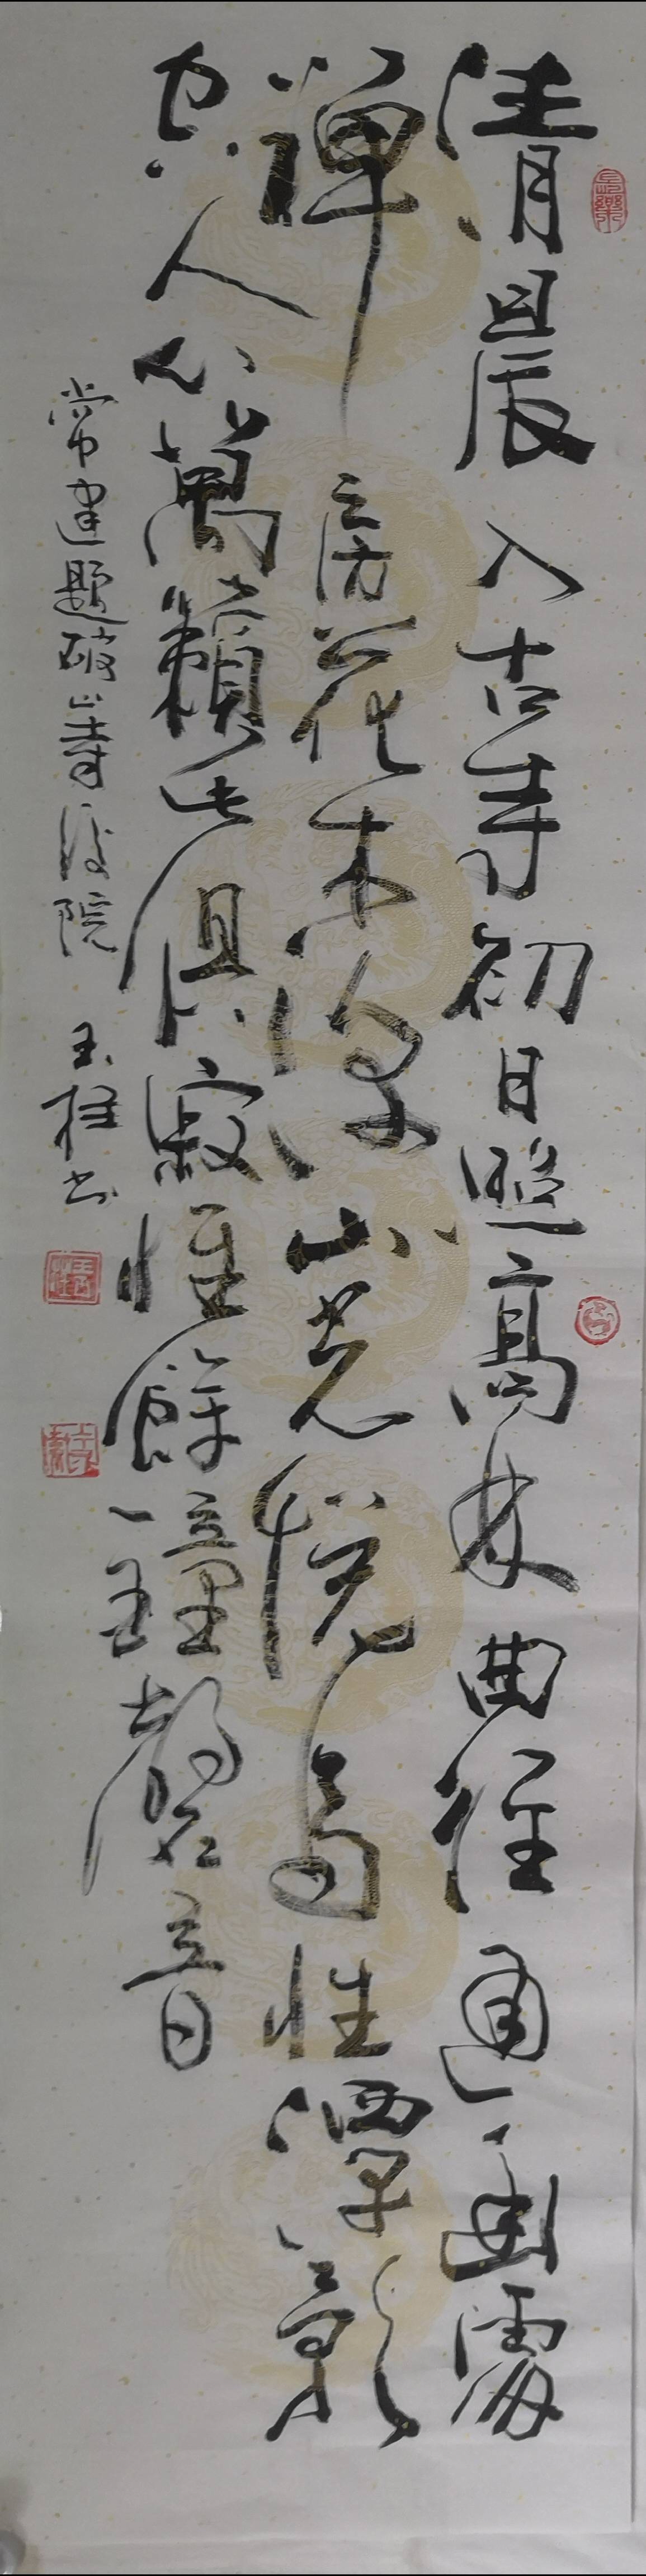 清晨入古寺初日照高林曲径通幽處
禅房花木深山光悦鸟性潭影
空人心萬籟此俱寂惟餘鐘磬音
常建题破山寺後院 玉桂书